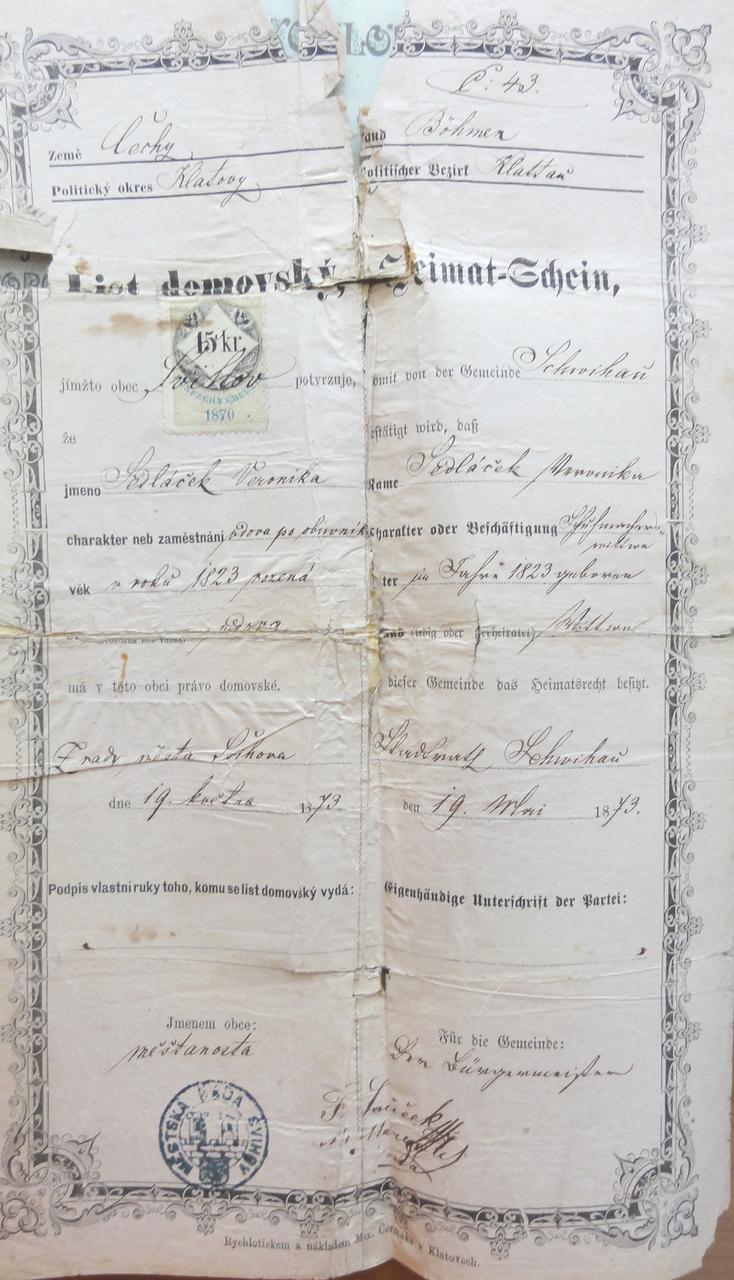 Č: 43.
Země Čechy
Politický okres Klatovy
Land Böhmen
Politischer Bezirk Klattau
List domovský,
Heimat-Schein,
15 kr.
1870
jímžto obec Švihov potvrzuje,
že
jmeno Sedláček Veronika
charakter neb zaměstnání vdova po obuvník
věk v roku 1823 rozená
vdova
má v této obci právo domovské.
Z rady města Švihova
dne 19. května 1873.
omit von der Gemeinde Schwihau
estätigt wird, daß
Name Sedláček Veronika
Charakter oder Beschäftigung Schuhmachers-
witwe
ter im Jahre 1823 geboren
(ledig oder verheiratet) Wittwe
dieser Gemeinde das Heimatsrecht besitzt.
Stadtrath Schwihau
den 19. Mai 1873.
Podpis vlastní ruky toho, komu se list domovský vydá:
Eigenhändige Unterschrift der Partei:
Jmenem obce:
měšťanosta
Für die Gemeinde:
Der Bürgermeister
MĚSTSKÁ RADA ŠVIHOV
Rychlotiskem a nákladem Max. Čermáka v Klatovech.